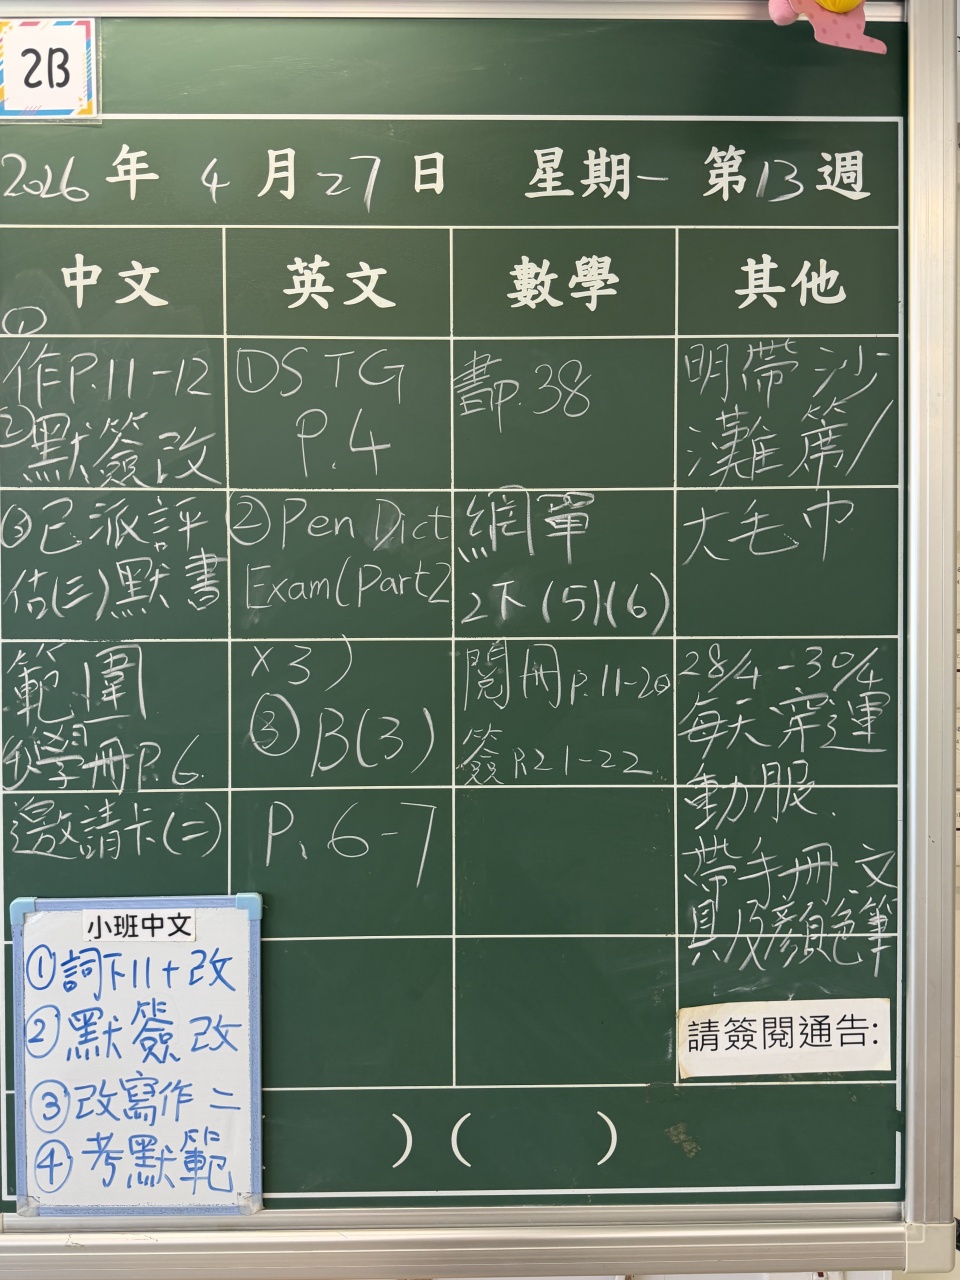 2B
2026年4月27日 星期一 第13週
中文 英文 數學 其他
①
作P.11-12
②默簽改
③已派評
估(三)默書
範圍
④學冊P.6
邀請卡(二)
①DSTG
P.4
②Pen Dict
Exam(Part2
x3)
③B(3)
P.6-7
書P.38
網單
2下(5)(6)
閱冊P.11-20
簽P.21-22
明帶沙
灘蓆/
大毛巾
28/4-30/4
每天穿運
動服.
帶手冊、文
具及顏色筆
請簽閱通告:
小班中文
①詞下11+改
②默簽改
③改寫作二
④考默範
) ( )